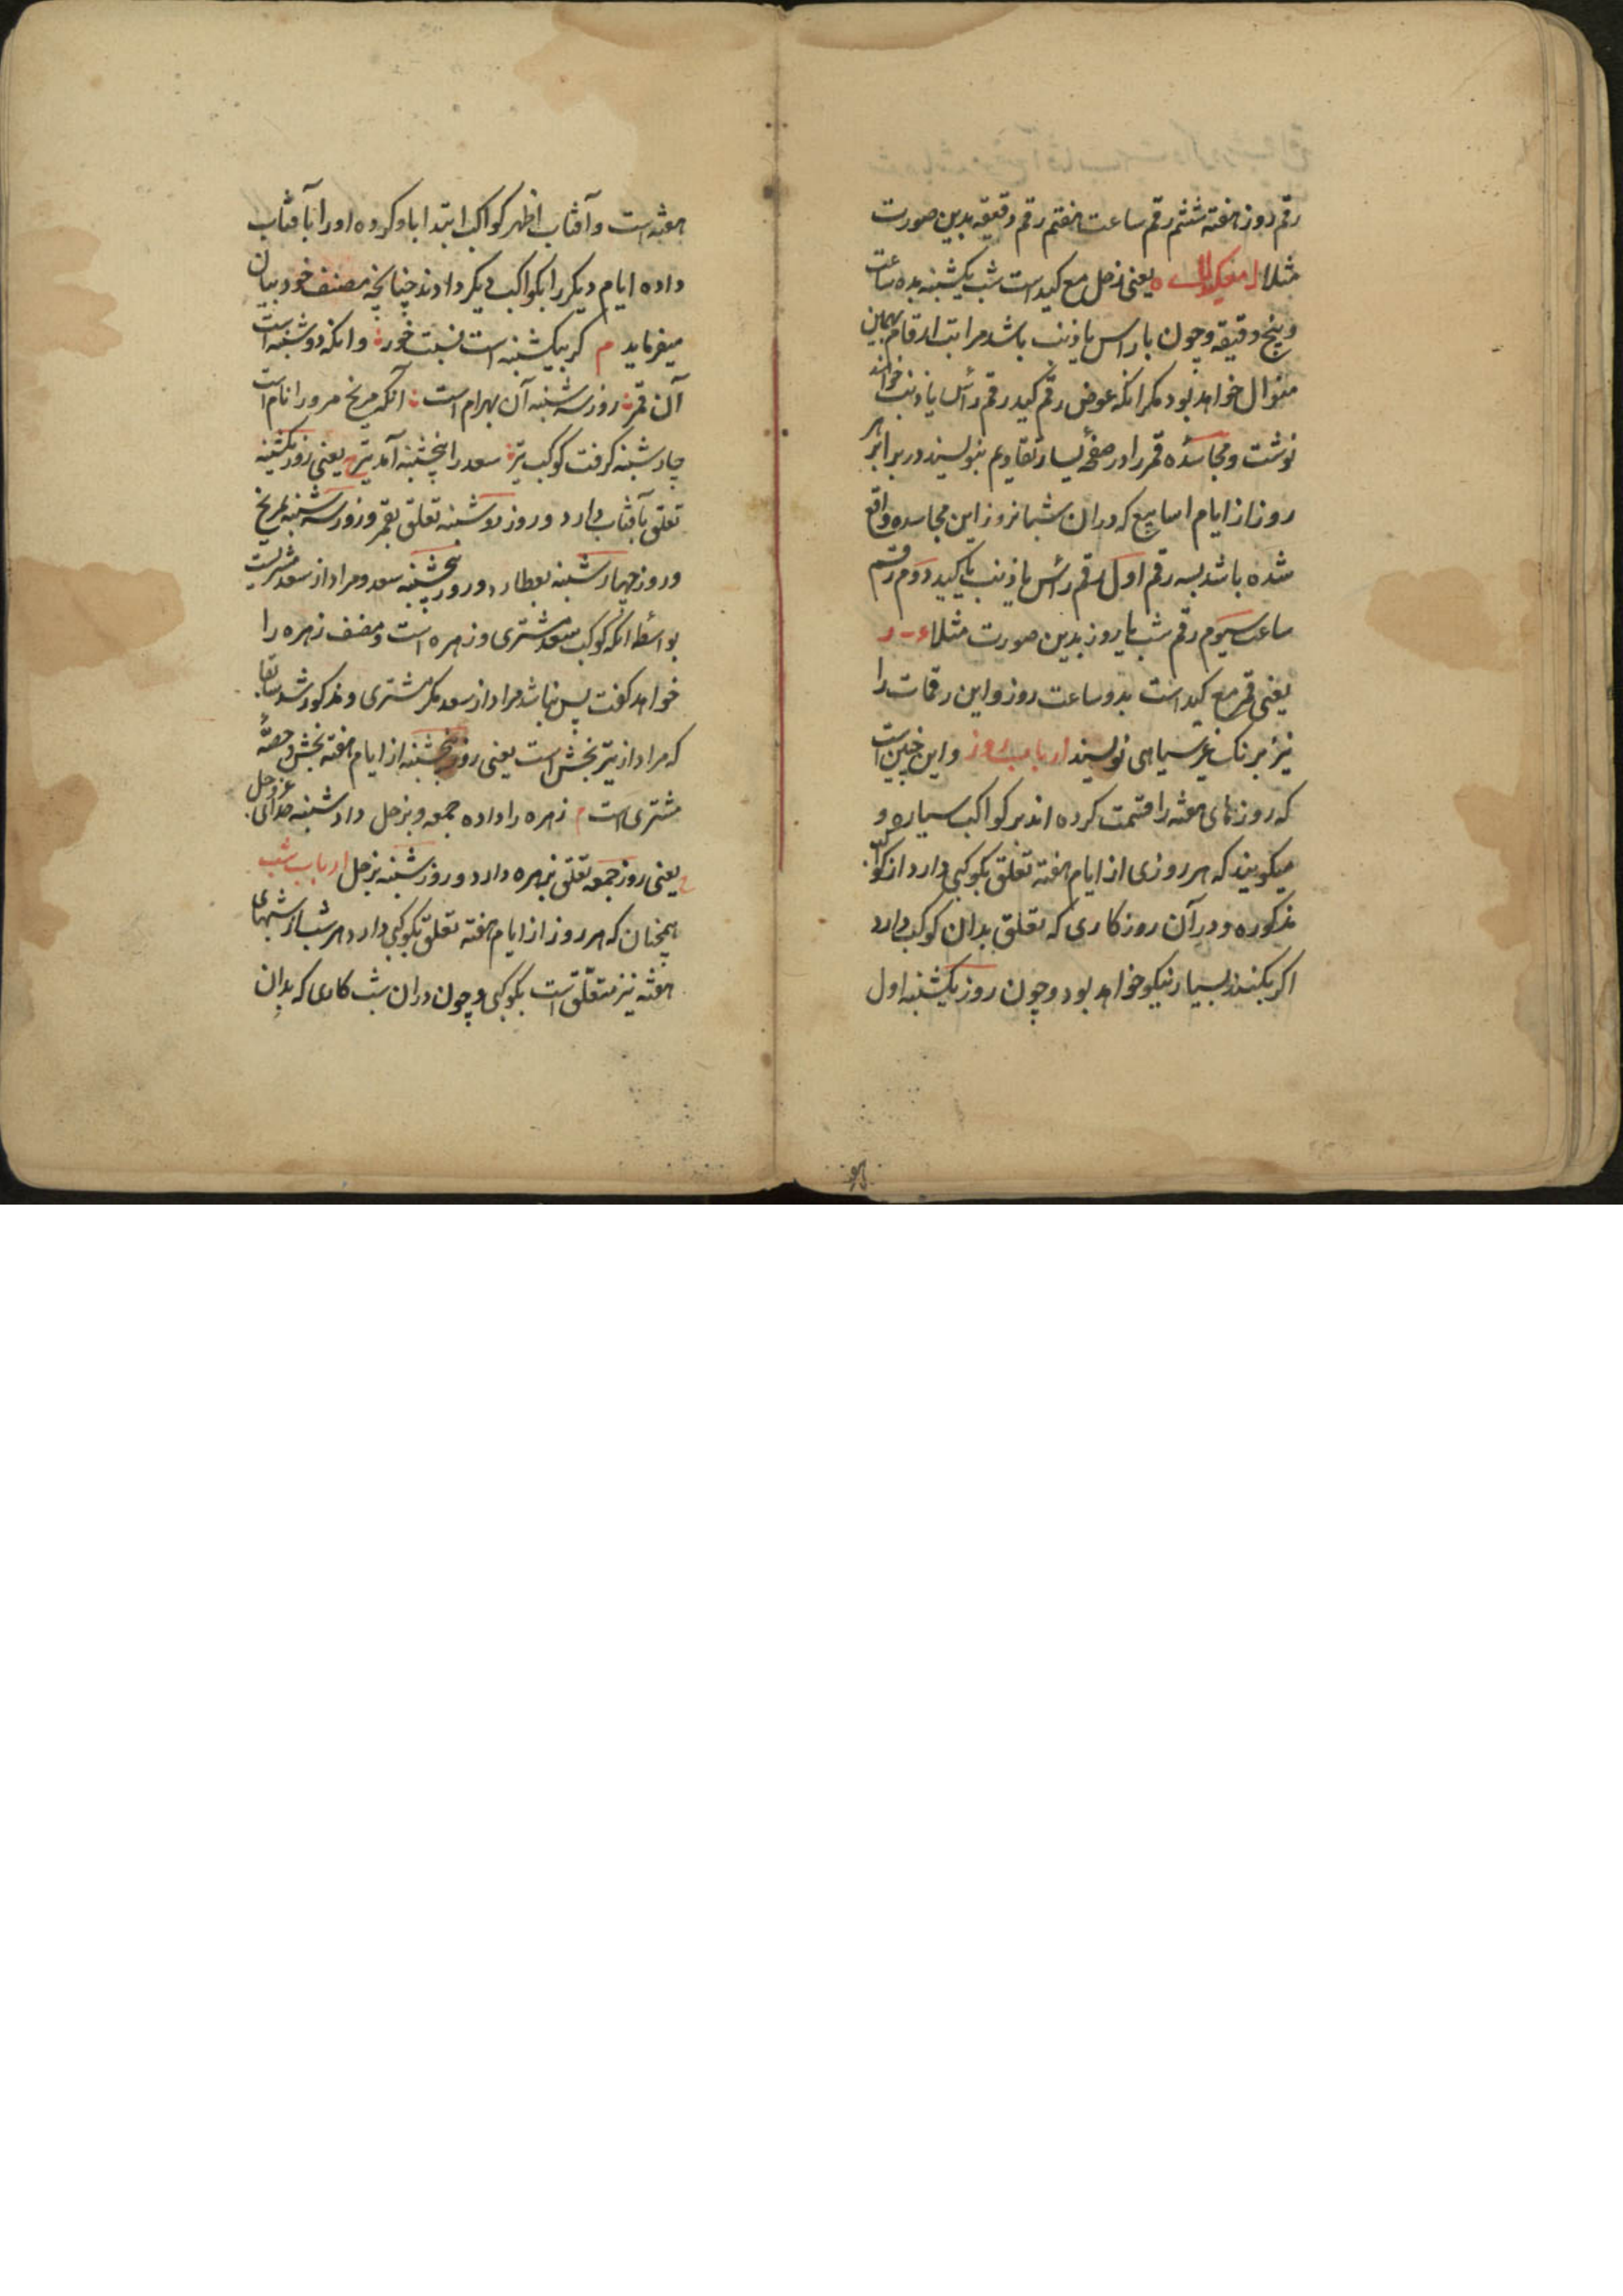 رقم روز هفته ششم رقم ساعت هفتم رقم دقیقه بدین صورت
مثلا یعنی زحل مع کید است شب یکشنبه بده ساعت
و پنج دقیقه و چون با راس یا ذنب باشد مراتب ارقام بهمین
منوال خواهد بود مکر انکه عوض رقم کید رقم رأس یا ذنب خواهند
نوشت و مجاسده قمر را در صفحهٔ یسار تقاویم بنویسند در برابر هر
روز از ایام اسابیع که در ان شبانروز این مجاسده واقع
شده باشد بسه رقم اول رقم رأس یا ذنب یا کید دوم رقم
ساعت سیوم رقم شب یا روز بدین صورت مثلا
یعنی قمر مع کید است بدو ساعت روز و این رقمات را
نیز برنک غیر سیاهی نویسند ارباب روز و این چنین است
که روزهای هفته را قسمت کرده اند بر کواکب سیاره و
میکویند که هر روزی از ایام هفته تعلق بکوکبی دارد از کواکب
مذکوره و در آن روز کاری که تعلق بدان کوکب دارد
اکر بکنند بسیار نیکو خواهد بود و چون روز یکشنبه اول
هفته است و آفتاب اظهر کواکب ابتدا باو کرده او را بآفتاب
داده ایام دیکر را بکواکب دیکر دادند چنانچه مصنف خود بیان
میفرماید م کر بیکشنبه است نسبت خور و انکه دوشنبه است
آن قمر روز سه شنبه آن بهرام است آنکه مریخ مرو را نام است
چارشنبه کرفت کوکب تیر سعد را پنجشنبه آمد تیر یعنی روز یکشنبه
تعلق بآفتاب دارد و روز دوشنبه تعلق بقمر و روز سه شنبه بمریخ
و روز چهارشنبه بعطارد و روز پنجشنبه بسعد و مراد از سعد مشتریست
بواسطه انکه کوکب سعد مشتری و زهره است و مصنف زهره را
خواهد کفت پس نباشد مراد از سعد مکر مشتری و مذکور شد سابقا
که مراد از تیر بخش است یعنی روز پنجشنبه از ایام هفته بخش و حصهٔ
مشتری است م زهره را داده جمعه و بزحل داد شنبه خدای عز و جل
یعنی روز جمعه تعلق بزهره دارد و روز شنبه بزحل ارباب شب
همچنان که هر روز از ایام هفته تعلق بکوکبی دارد هر شب از شبهای
هفته نیز متعلق است بکوکبی و چون در ان شب کاری که بدان